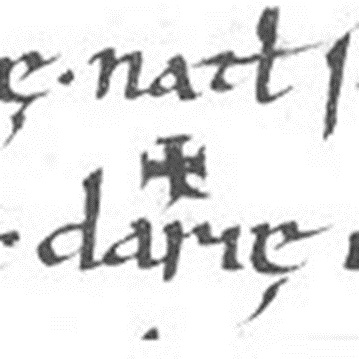 ę · natł
✠
· darię